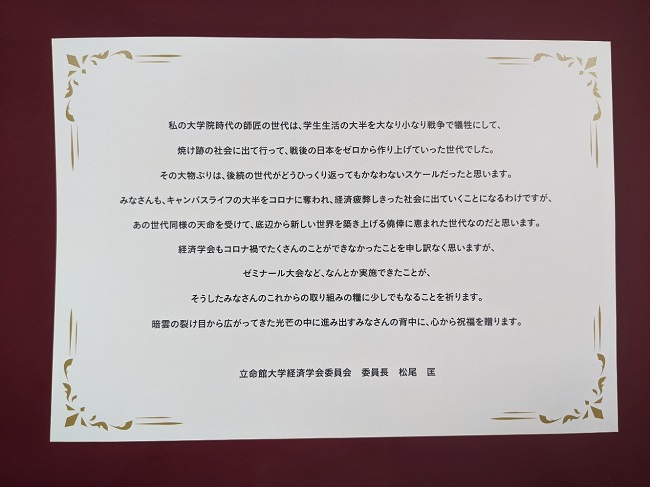 私の大学院時代の師匠の世代は、学生生活の大半を大なり小なり戦争で犠牲にして、
焼け跡の社会に出て行って、戦後の日本をゼロから作り上げていった世代でした。
その大物ぶりは、後続の世代がどうひっくり返ってもかなわないスケールだったと思います。
みなさんも、キャンパスライフの大半をコロナに奪われ、経済疲弊しきった社会に出ていくことになるわけですが、
あの世代同様の天命を受けて、底辺から新しい世界を築き上げる僥倖に恵まれた世代なのだと思います。
経済学会もコロナ禍でたくさんのことができなかったことを申し訳なく思いますが、
ゼミナール大会など、なんとか実施できたことが、
そうしたみなさんのこれからの取り組みの糧に少しでもなることを祈ります。
暗雲の裂け目から広がってきた光芒の中に進み出すみなさんの背中に、心から祝福を贈ります。
立命館大学経済学会委員会　委員長　松尾　匡